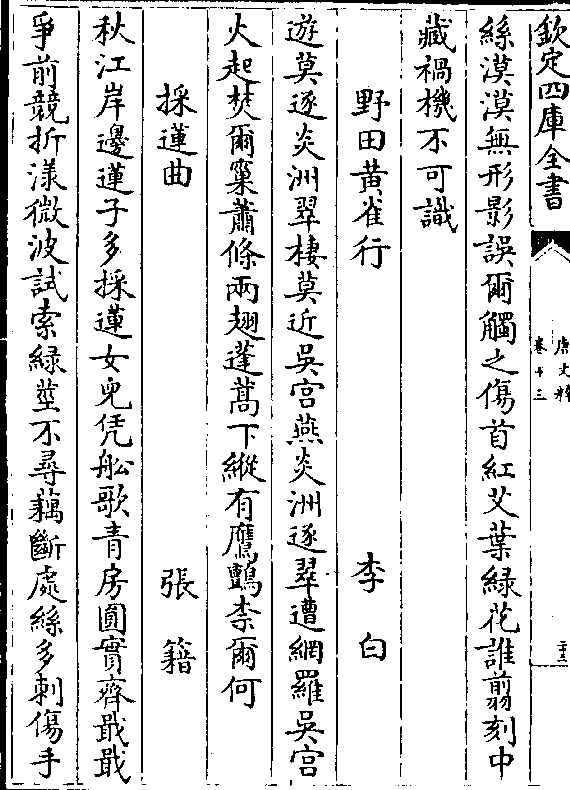 欽定四庫全書
唐文粹
卷十三
二十三
絲漠漠無形影誤爾觸之傷首紅艾葉綠花誰翦刻中
藏禍機不可識
野田黄雀行 李白
遊莫逐炎洲翠棲莫近吳宫燕炎洲逐翠遭網羅吳宫
火起焚爾窠蕭條兩翅蓬蒿下縱有鷹鸇柰爾何
採蓮曲 張籍
秋江岸邊蓮子多採蓮女兒凭舩歌青房圓實齊戢戢
爭前競折漾微波試索緑莖不尋藕斷處絲多刺傷手